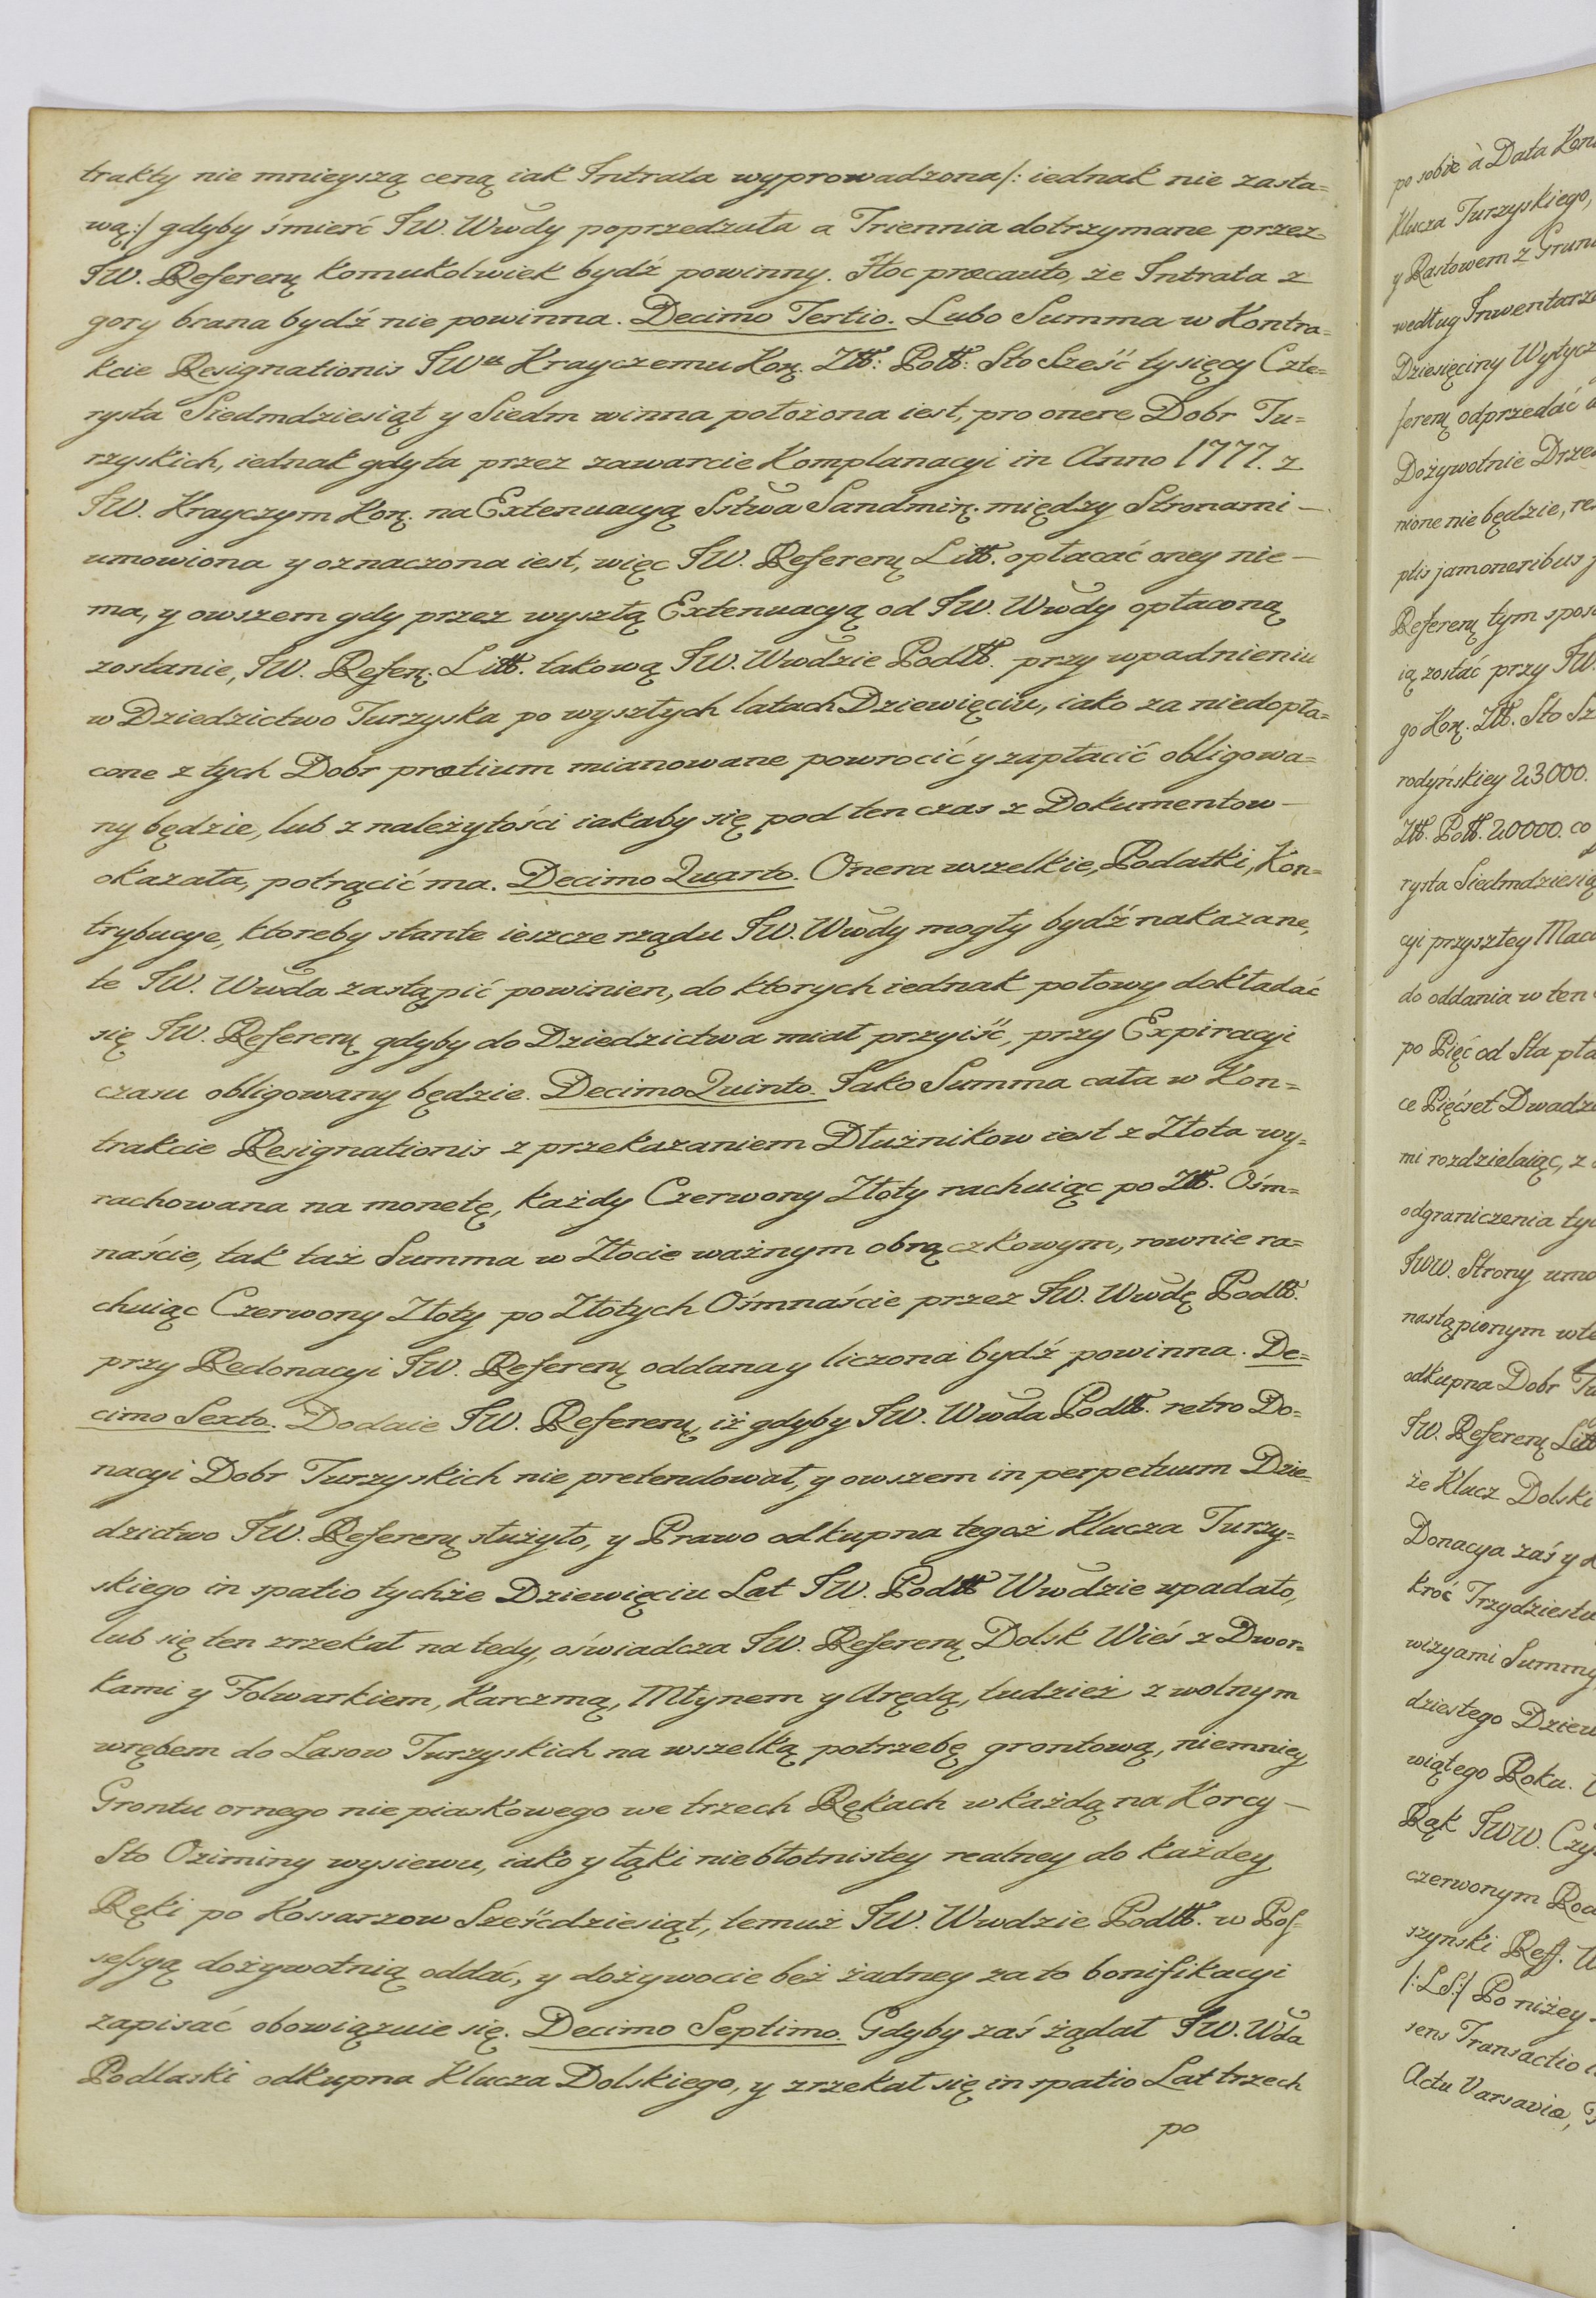 trakty nie mnieyszą ceną iak Intrata wyprowadzona/: iednak nie zasta=
wą:/ gdyby śmierć JW. Wwdy poprzedzała a Triennia dotrzymane przez
JW. Referenꝫ komukolwiek bydź powinny. Hoc præcauto, że Intrata z
gory brana bydź nie powinna. Decimo Tertio. Lubo Summa w Kontra=
kcie Resignationis JWu Krayczemu Korꝫ. Złł: Połł: Sto Sześć tysięcy Czte=
rysta Siedmdziesiąt y Siedm winna położona iest, pro onere Dobr Tu=
rzyskich, iednak gdy ta przez zawarcie Komplanacyi in Anno 1777. z
JW. Krayczym Korꝫ. na Extenuacyą Sstwa Sandmirꝫ. między Stronami —
umowiona y oznaczona iest, więc JW. Referenꝫ Litt. opłacać oney nie —
ma, y owszem gdy przez wyszłą Extenuacyą od JW. Wwdy opłaconą
zostanie, JW. Referꝫ. Litt. takową JW. Wwdzie Podll. przy wpadnieniu
w Dziedzictwo Turzyska po wyszłych latach Dziewięciu, iako za niedopła=
cone z tych Dobr prætium mianowane powrocić y zapłacić obligowa=
ny będzie, lub z należytości iakaby się pod ten czas z Dokumentow —
okazała, potrącić ma. Decimo Quarto. Onera wszelkie, Podatki, Kon=
trybucye, ktoreby stante ieszcze rządu JW. Wwdy mogły bydź nakazane,
te JW. Wwda zastąpić powinien, do ktorych iednak połowy dokładać
się JW. Referenꝫ gdyby do Dziedzictwa miał przyiść, przy Expiracyi
czasu obligowany będzie. Decimo Quinto. Jako Summa cała w Kon=
trakcie Resignationis z przekazaniem Dłużnikow iest z Złota wy=
rachowana na monetę, każdy Czerwony Złoty rachuiąc po Złł. Ośm=
naście, tak taż Summa w Złocie ważnym obrączkowym, rownie ra=
chuiąc Czerwony Złoty po Złotych Ośmnaście przez JW. Wwdę Podll.
przy Redonacyi JW. Referenꝫ oddana y liczona bydź powinna. De=
cimo Sexto. Dodaie JW. Referenꝫ, iż gdyby JW. Wwda Podll. retro Do=
nacyi Dobr Turzyskich nie pretendował, y owszem in perpetuum Dzie=
dzictwo JW. Referenꝫ służyło, y Prawo odkupna tegoż Klucza Turzy=
skiego in spatio tychże Dziewięciu Lat JW. Podll Wwdzie upadało,
lub się ten zrzekał na tedy, oświadcza JW. Referenꝫ Dolsk Wieś z Dwor=
kami y Folwarkiem, Karczmą, Młynem y Arędą, tudzież z wolnym
wrębem do Lasow Turzyskich na wszelką potrzebę grontową, niemniey
Grontu ornego nie piaskowego we trzech Rękach w każdą na Korcy —
Sto Oziminy wysiewu, iako y łąki niebłotnistey realney do każdey
Ręki po Kossarzow Sześćdziesiąt, temuż JW. Wwdzie Podll. w Pos=
sessyą dożywotnią oddać, y dożywocie beż żadney za to bonifikacyi
zapisać obowiązuie się. Decimo Septimo. Gdyby zaś żądał JW. Wda
Podlaski odkupna Klucza Dolskiego, y zrzekał się in spatio Lat trzech
po
po sobie à Data Kon
Klucza Turzyskiego,
y Rastowem z Grun
według Inwentarz
Dziesięciny Wytycz
ferenꝫ odprzedać
Dożywotnie Drze
nione nie będzie, re
ptis jam oneribus
Referenꝫ tym spos
ią zostać przy JW.
go Korꝫ. Złł. Sto Sz
rodyńskiey 23000.
Złł. Połł. 20000. co
rysta Siedmdziesią
cyi przyszłey Mac
do oddania w ten
po Pięć od Sta pła
ce Pięćset Dwadz
mi rozdzielaiąc, z
odgraniczenia ty
JWW. Strony umo
nastąpionym wte
odkupna Dobr Tu
JW. Referenꝫ Litt
że Klucz Dolski
Donacya zaś y
kroć Trzydziestu
wizyami Summy
dziestego Dziew
wiątego Roku.
Rąk JWW. Czy
czerwonym
szynski Reff.
/:LS:/ Po niżey
sens Transactio
Actu Varsaviæ,